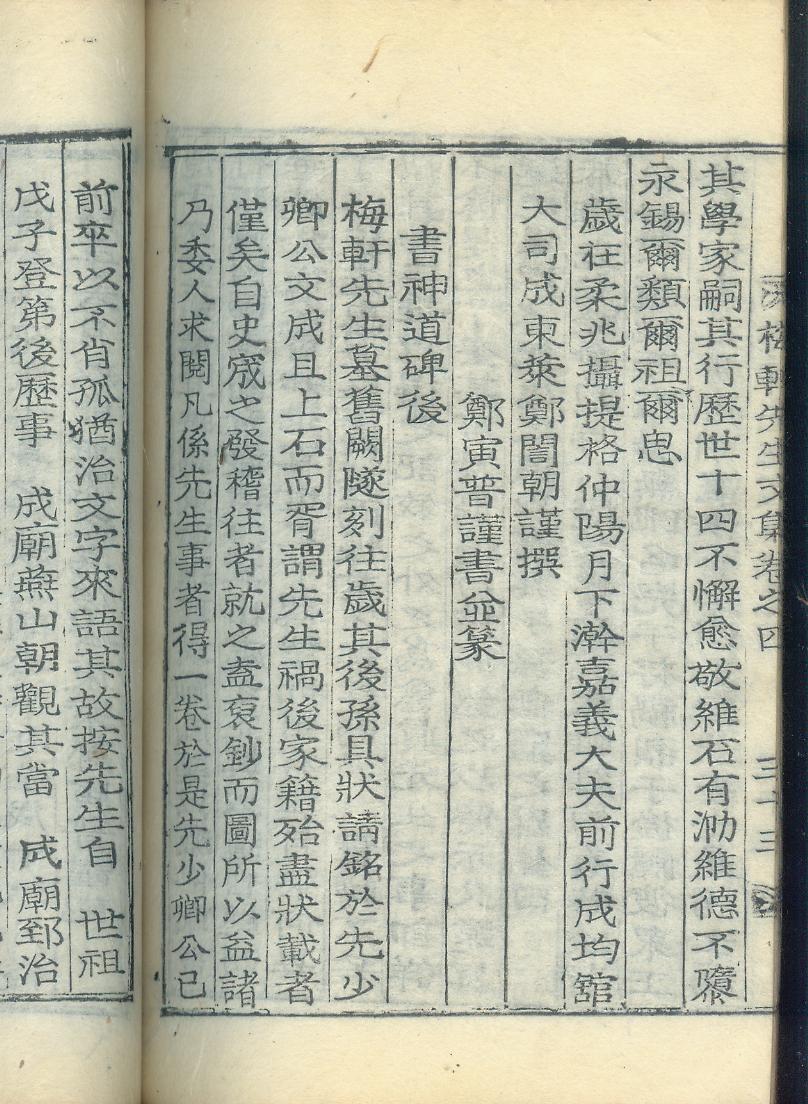 梅軒先生文集卷之四 三十三
其學家嗣其行歷世十四不懈愈敬維石有泐維德不隳
永錫爾類爾祖爾思
歲在柔兆攝提格仲陽月下澣嘉義大夫前行成均舘
大司成東萊鄭誾朝謹撰
鄭寅普謹書並篆
書神道碑後
梅軒先生墓舊闕隧刻往歲其後孫具狀請銘於先少
卿公文成且上石而胥謂先生禍後家籍殆盡狀載者
僅矣自史宬之發稽往者就之盍裒鈔而圖所以益諸
乃委人求閱凡係先生事者得一卷於是先少卿公已
前卒以不肖孤猶治文字來語其故按先生自 世祖
戊子登第後歷事 成廟燕山朝觀其當 成廟郅治